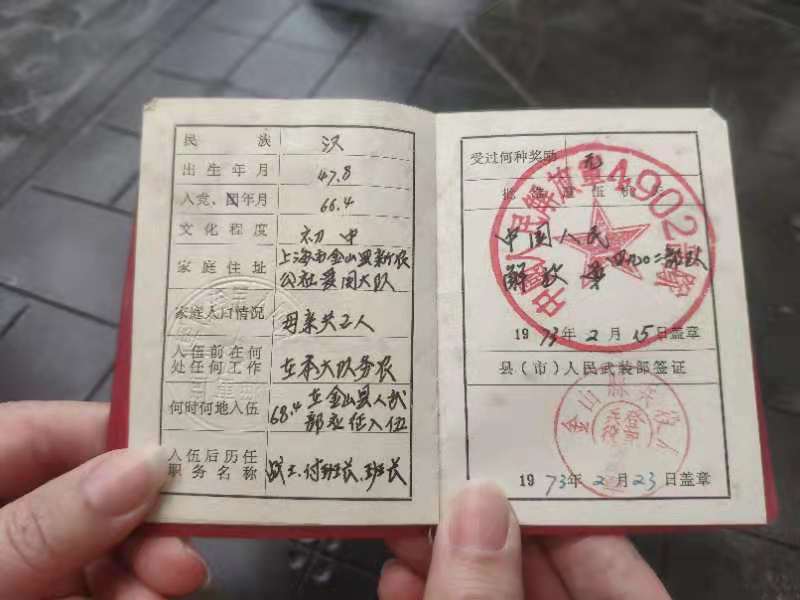 民族 汉
出生年月 47.8
入党、团年月 66.4
文化程度 初中
家庭住址 上海市金山县新农
公社爱国大队
家庭人口情况 母亲共五人
入伍前在何
处任何工作 在本大队务农
何时何地入伍 68.4在金山县人武
部应征入伍
入伍后历任
职务名称 战士.付班长.班长
受过何种奖励 无
批准退伍机关
中国人民解放军4902部队
中国人民
解放军四九〇二部队
1973年2月15日盖章
县(市)人民武装部签证
金山县
1973年2月23日盖章